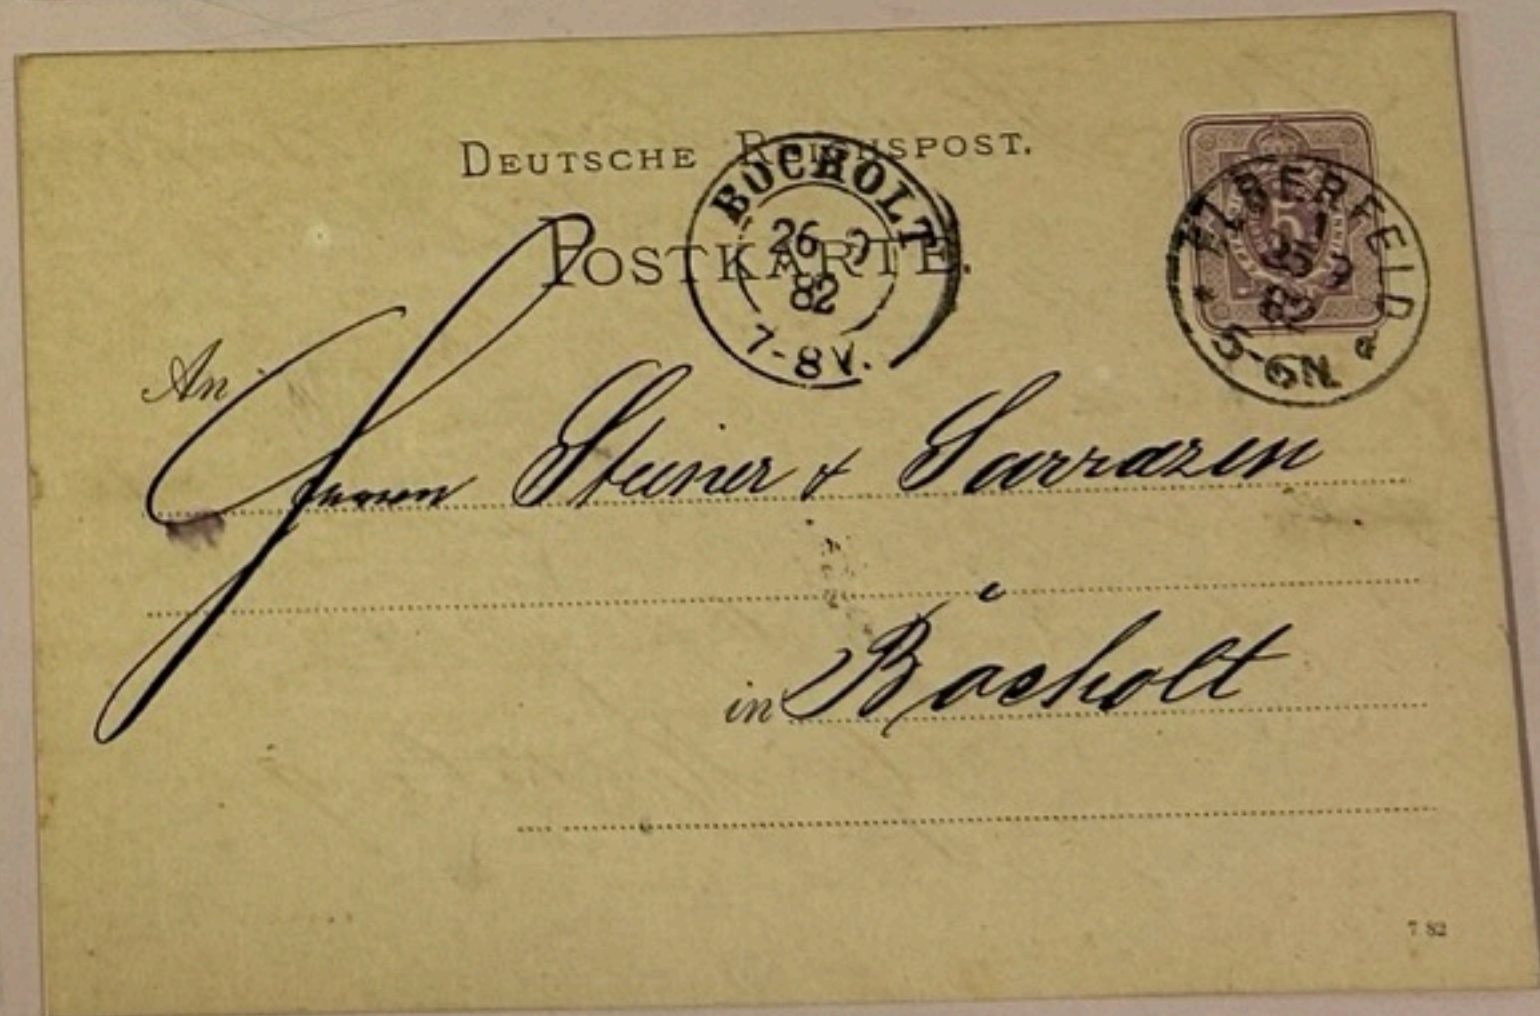 DEUTSCHE REICHSPOST.
POSTKARTE.
BOCHOLT
26 9
82
7-8 V.
ELBERFELD
1
25 9
82
5-6N.
* a
An
Herren Steiner & Sarrazen
in Bocholt
7 82